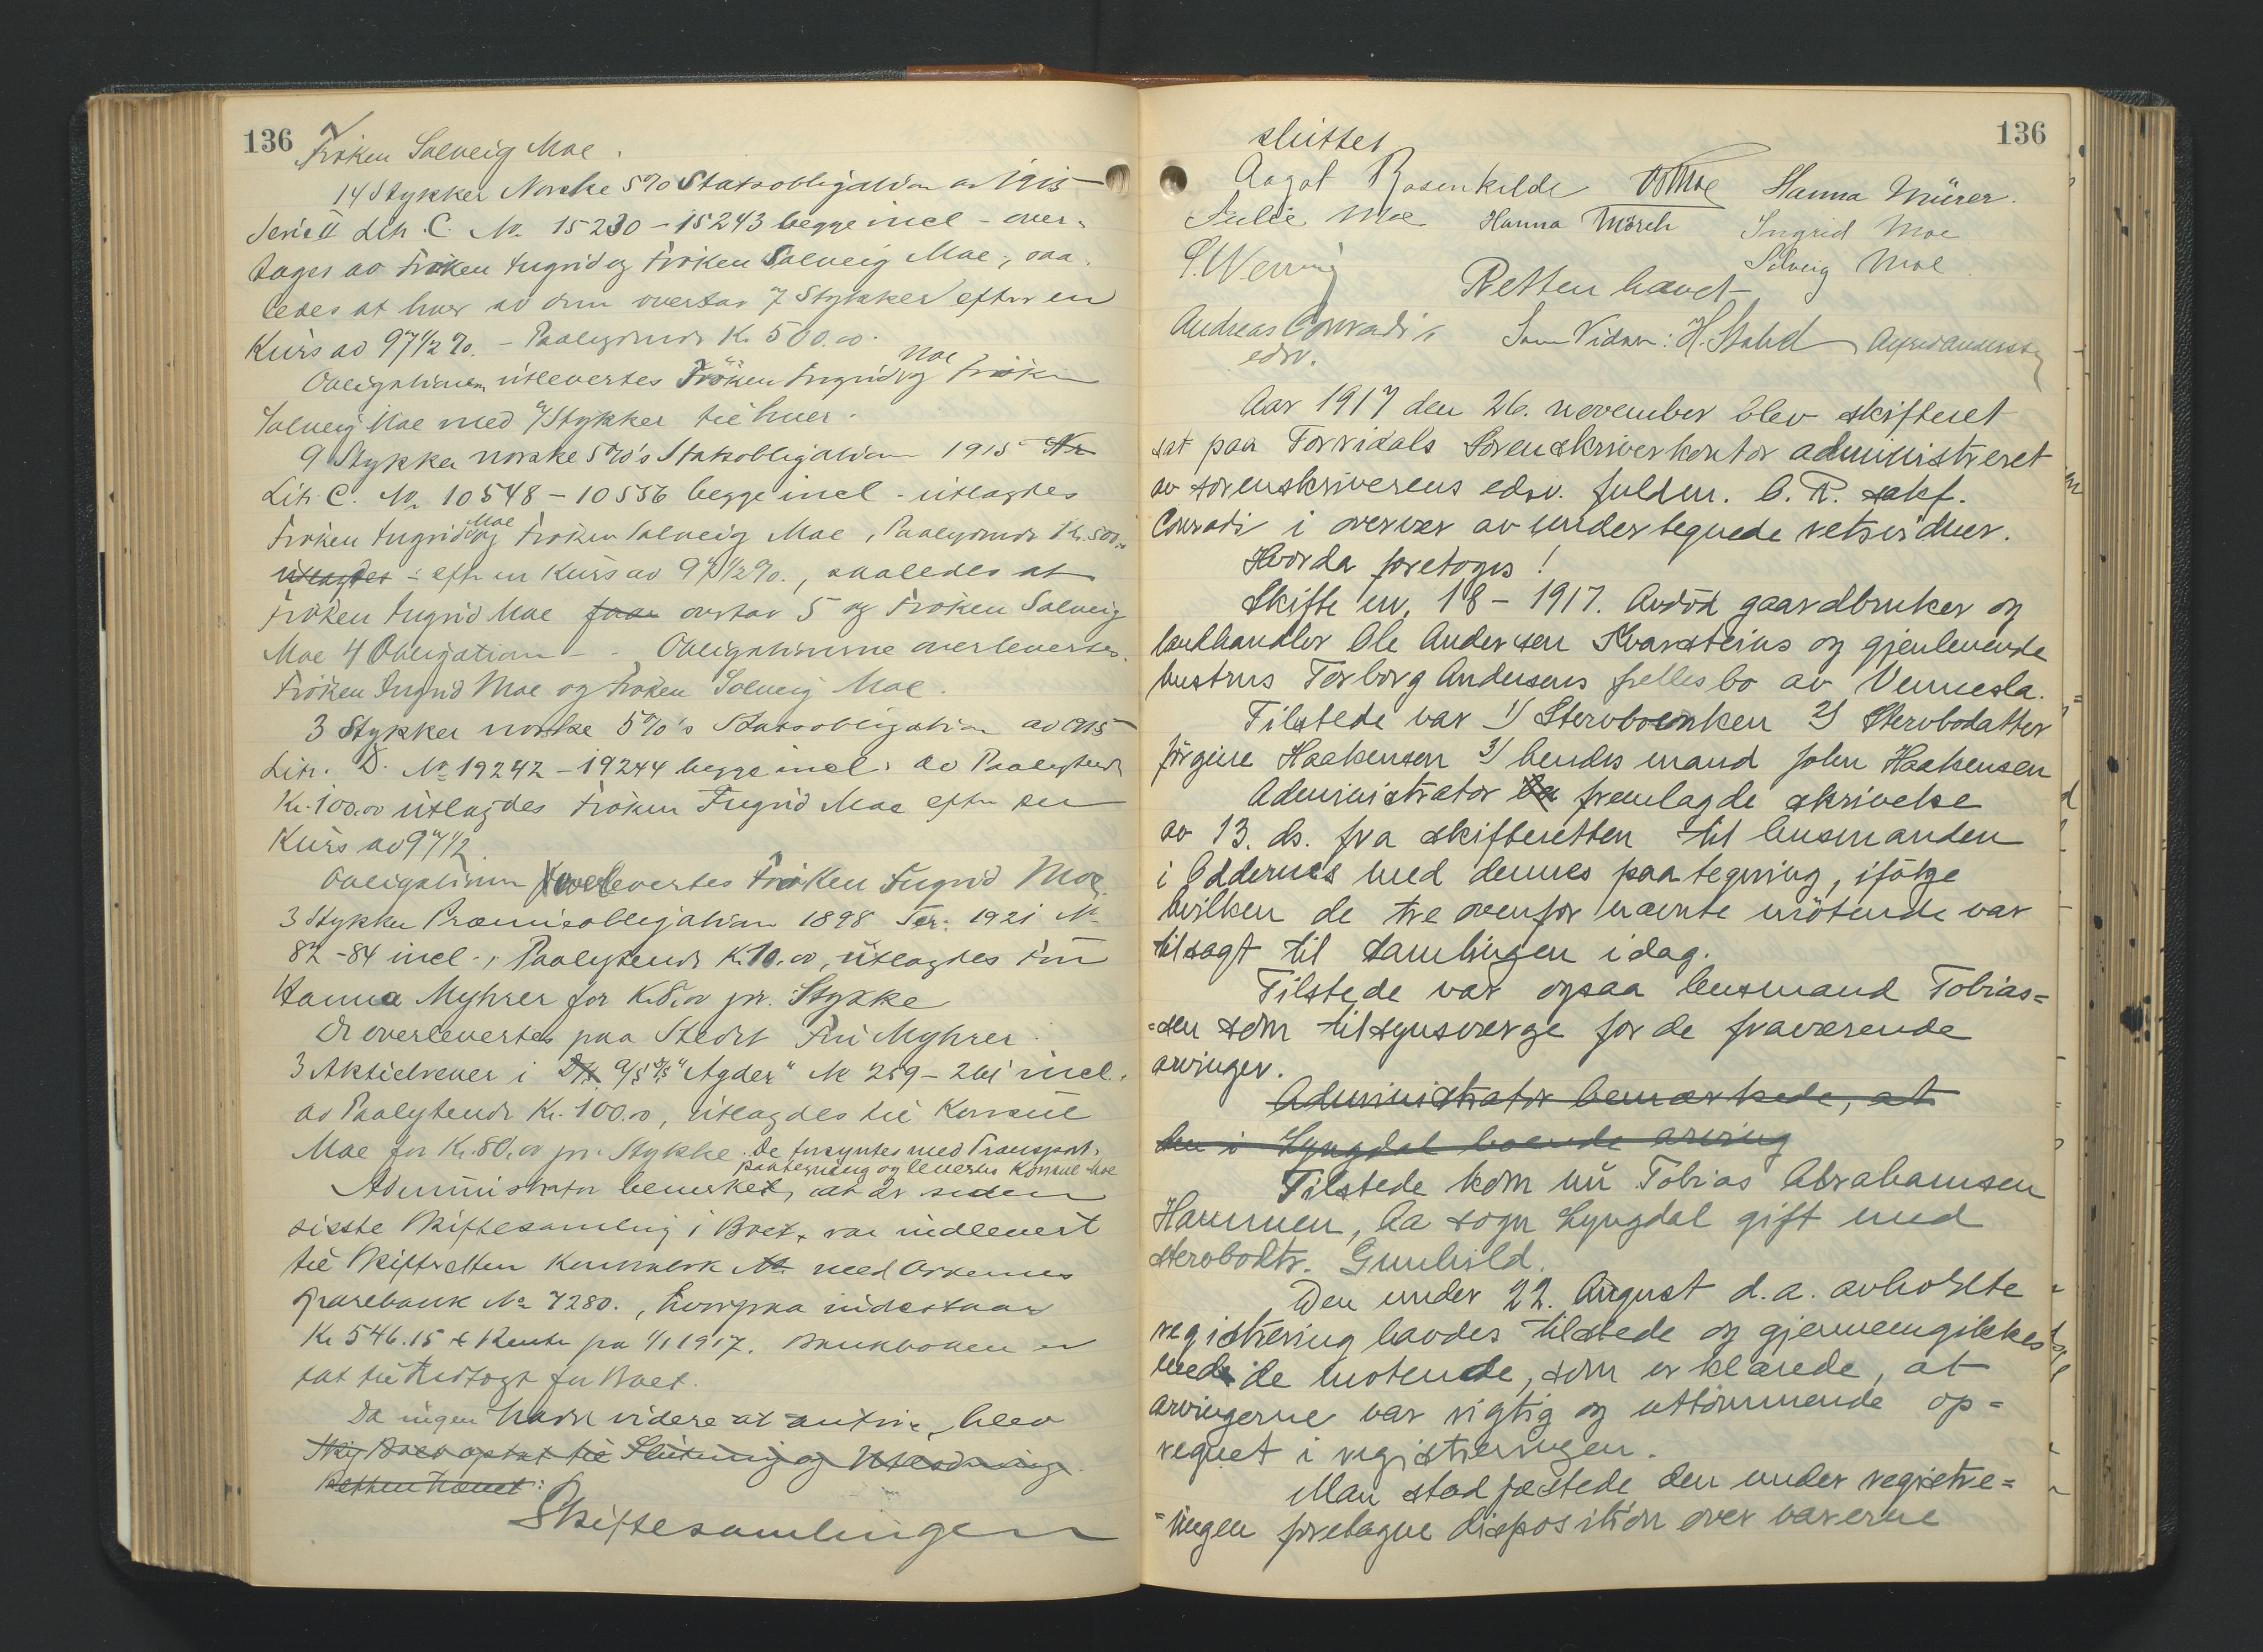 136
Frøken Solveig Moe.
14 Stykker Norske 5% Statsobligation av 1915
Serie II Litr. C. No 15230 – 15243 begge incl – over-
tages av Frøken Ingrid og Frøken Solveig Moe, saa-
ledes at hver av dem overtar 7 Stykker efter en
Kurs av 97 1/2 %. – Paalydende Kr. 500.00.
Obligationen utlevertes Frøken Ingrid Moe og Frøken
Solveig Moe med 7 Stykker til hver.
9 Stykker norske 5%'s Statsobligation 1915 Nr
Litr. C. No 10548 – 10556 begge incl – utlagdes
Frøken Ingrid Moe og Frøken Solveig Moe, Paalydende Kr. 500.00
utlagdes – efter en Kurs av 97 1/2 %., saaledes at
Frøken Ingrid Moe faar overtar 5 og Frøken Solveig
Moe 4 Obligation – . Obligationerne overlevertes
Frøken Ingrid Moe og Frøken Solveig Moe.
3 Stykker norske 5%'s Statsobligation av 1915
Litr. D. No 19242 – 19244 begge incl. av Paalydende
Kr. 100.00 utlagdes Frøken Ingrid Moe efter en
Kurs av 97 1/2.
Obligationen overlevertes Frøken Ingrid Moe.
3 Stykker Præmieobligation 1898 Ser. 1921 No
82 – 84 incl., Paalydende Kr. 10.00, utlagdes Fru
Hanna Myhrer for Kr. 8.00 pr. Stykke
De overlevertes paa Stedet Fru Myhrer.
3 Aktiebrever i D/S A/S D/S "Agder" No 259 – 261 incl.
av Paalydende Kr. 100.00, utlagdes til Konsul
Moe for Kr. 80.00 pr. Stykke. De forsyntes med Transport-
paategning og leverts Konsul Moe
Administrator bemerket, at der siden
sidste Skiftesamling i Boet, var indlevert
til Skifteretten Kontrabok No med Oddernes
Sparebank No 7280., hvorpaa indestaar
Kr 546.15 + Rente fra 1/1 1917. Bankboken er
tat til Indtægt for Boet.
Da ingen hadde videre at anføre, blev
Boet optat til Slutning og Utlodning.
Retten hævet:
Skiftesamlingen
136
sluttet
Aagot Rosenkilde O Moe Hanna Mürer.
Julie Moe Hanna Mörch Ingrid Moe
S. Werring Solveig Moe
Retten hævet
Andreas Conradi
edsv. Som Vidner: H. Stabel Alfred Andersen
Aar 1917 den 26. november blev skifteret
sat paa Torridals Sorenskriverkontor administreret
av sorenskriverens edsv. fuldm. C. R. sakf.
Conradi i overvær av undertegnede retsvidner.
Hvorda foretoges!
Skifte nr. 18 – 1917. Avdød gaardbruker og
landhandler Ole Andersen Kvarsteins og gjenlevende
hustrus Torborg Andersens felles bo av Vennesla.
Tilstede var 1) Stervboenken 2) Stervbodatter
Jørgine Haakensen 3) hendes mand John Haakensen
Administrator fremlagde skrivelse
av 13. ds. fra skifteretten til lensmanden
i Oddernes med dennes paategning, ifølge
hvilken de tre ovenfor nævnte møtende var
tilsagt til samlingen idag.
Tilstede var ogsaa lensmand Tobias=
=sen som tilsynsværge for de fraværende
arvinger.
Administrator bemærkede, at
den i Lyngdal boende arving
Tilstede kom nu Tobias Abrahamsen
Hammen, Aa sogn Lyngdal gift med
stervbodtr. Gunhild.
Den under 22. August d.a. avholdte
registrering havdes tilstede og gjennemgikkes
med de møtende, som erklærede, at
arvingerne var rigtig og uttømmende op=
regnet i registreringen.
Man stadfæstede den under registre=
=ringen foretagne disposition over varerne